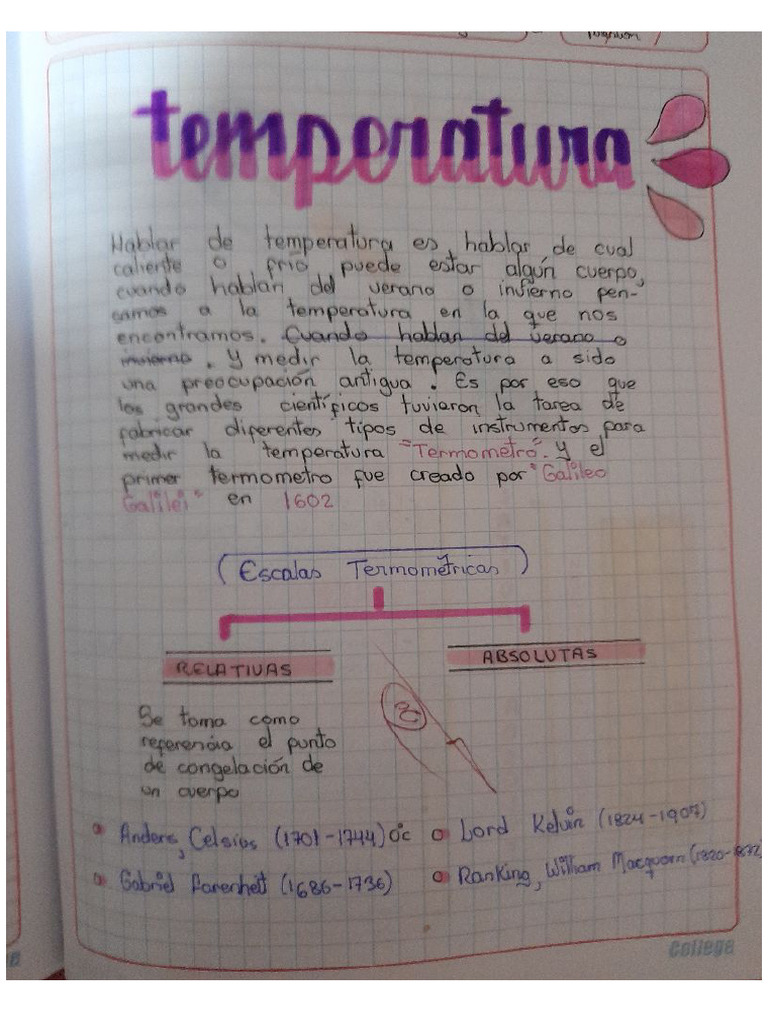 temperatura
Hablar de temperatura es hablar de cual
caliente o frio puede estar algún cuerpo,
cuando hablan del verano o invierno pen-
samos a la temperatura en la que nos
encontramos. Cuando hablan del verano o
invierno. Y medir la temperatura a sido
una preocupación antigua. Es por eso que
los grandes científicos tuvieron la tarea de
fabricar diferentes tipos de instrumentos para
medir la temperatura "Termometro". y el
primer termometro fue creado por "Galileo
Galilei" en 1602
(Escalas Termométricas)
RELATIVAS
ABSOLUTAS
Se toma como
referencia el punto
de congelación de
un cuerpo
Anders, Celsios (1701-1744) 0°c
Lord Kelvin (1824-1907)
Gabriel Farenheit (1686-1736)
Ranking, William Macquorn (1820-1872)
College